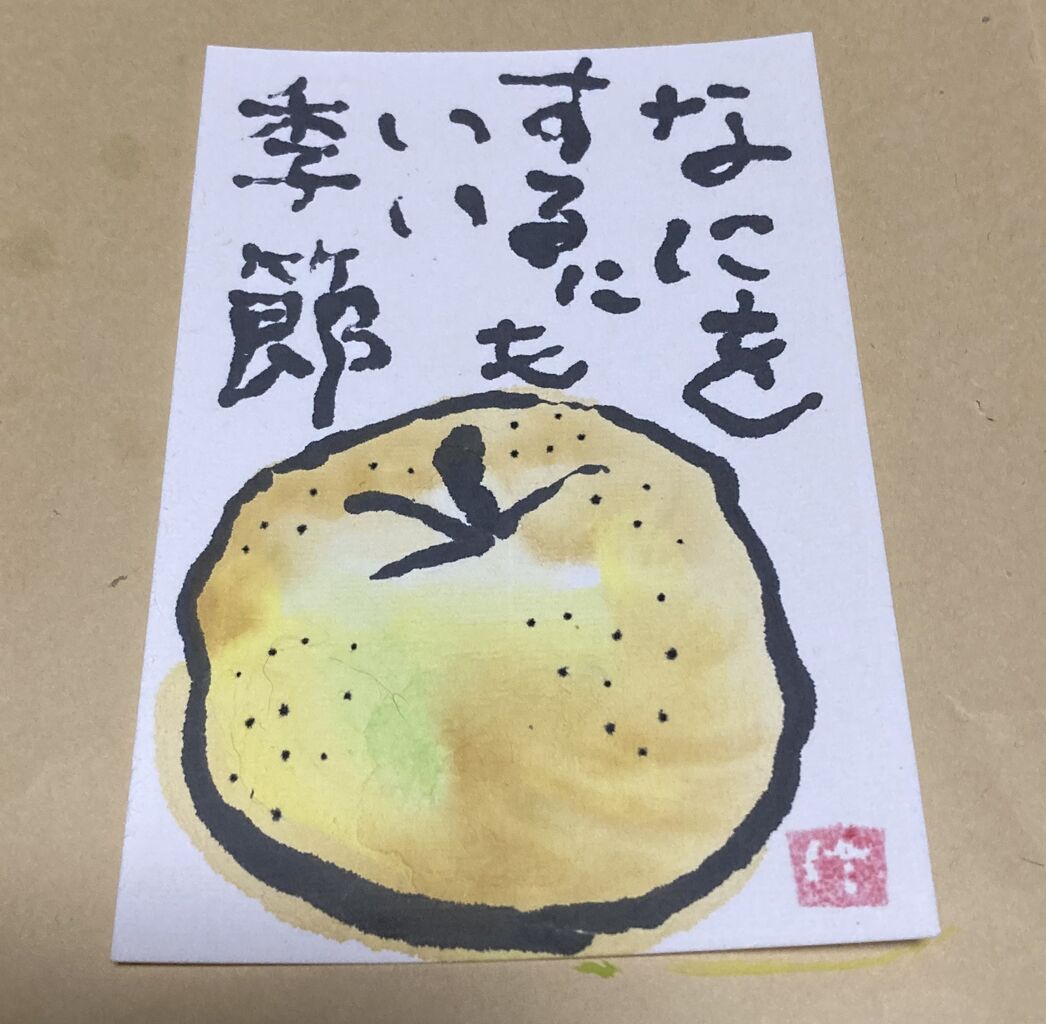 なにを
するにも
いい
季節